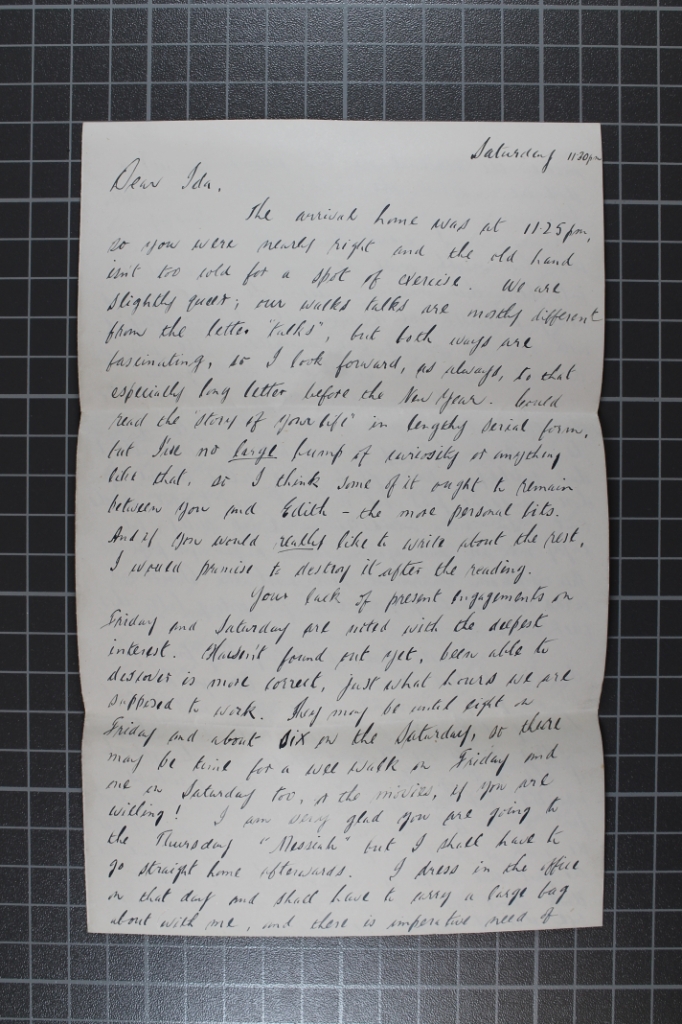 Saturday 11 30pm
Dear Ida,
The arrival home was at 11.25 pm,
so you were nearly right and the old hand
isn't too old for a spot of exercise. We are
slightly queer; our walks talks are mostly different
from the letter "talks", but both ways are
fascinating, so I look forward, as always, to that
especially long letter before the New Year. Could
read the "story of your life" in lengthy serial form,
but I've no large bump of curiosity or anything
like that, so I think some of it ought to remain
between you and Edith - the more personal bits.
And if you would really like to write about the rest,
I would promise to destroy it after the reading.
Your lack of present engagements on
Friday and Saturday are noted with the deepest
interest. Haven't found out yet, been able to
discover is more correct, just what hours we are
supposed to work. They may be until eight on
Friday and about six on the Saturday, so there
may be time for a wee walk on Friday and
one on Saturday too, or the movies, if you are
willing! I am very glad you are going to
the Thursday "Messiah" but I shall have to
go straight home afterwards. I dress in the office
on that day and shall have to carry a large bag
about with me, and there is imperative need of